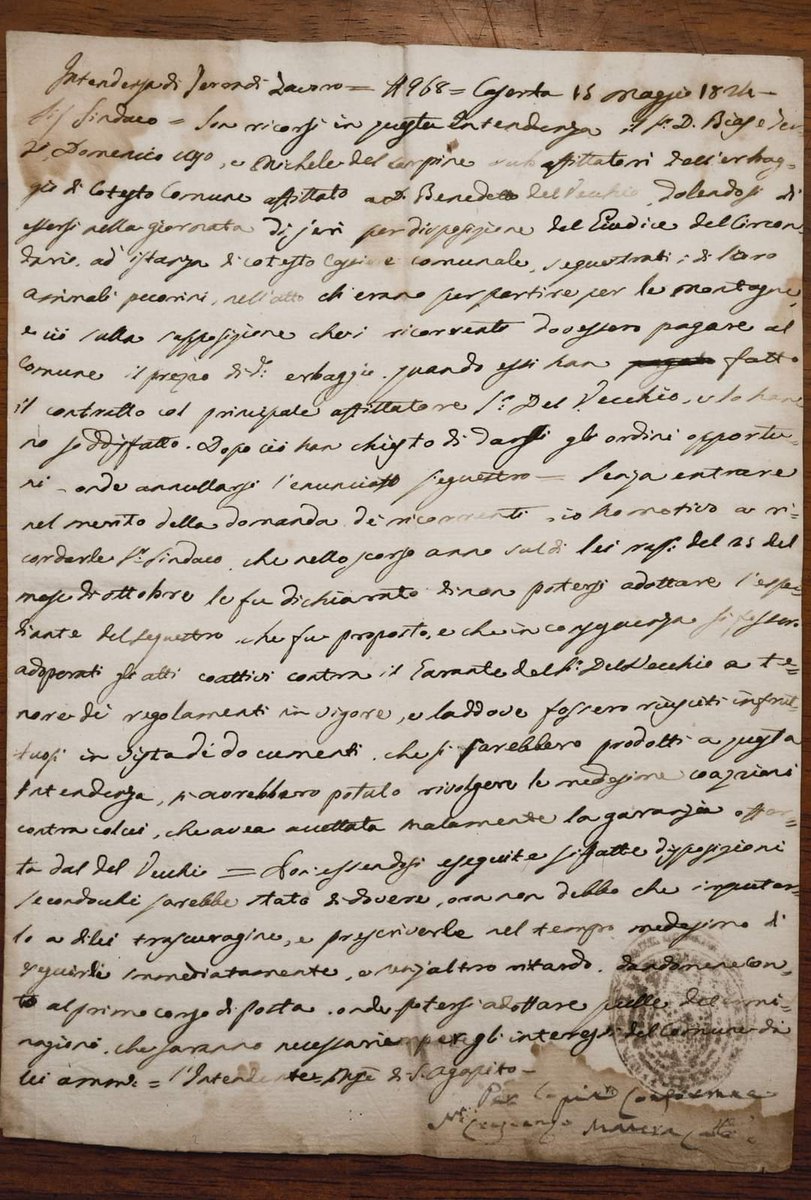 Intendenza di Terra di Lavoro = N 968 = Caserta 15 Maggio 1824 –
Sig.r Sindaco = Son ricorsi in questa Intendenza il S.r D. Biase
Domenico e Michele del Carpine sub affittatori dell'erbag-
gio di Cotesto Comune affittato a D. Benedetto Del Vecchio, dolendosi di
essersi nella giornata di jeri per disposizione del Giudice del Circon-
dario, ad istanza di cotesto Cassiere comunale, sequestrati i di loro
animali pecorini, nell'atto ch'erano per partire per le montagne,
e ciò sulla supposizione che i ricorrenti dovessero pagare al
Comune il prezzo di d.o erbaggio, quando essi han fatto
il contratto col principale affittatore S.r Del Vecchio, e lo han-
no soddisfatto. Dopo ciò han chiesto di darsi gli ordini opportu-
ni, onde annullarsi l'enunciato sequestro = Senza entrare
nel merito della domanda de' ricorrenti, io ho motivo a ri-
cordarle S.r Sindaco, che nello scorso anno sul di lei rap.o del 25 del
mese di ottobre le fu dichiarato di non potersi adottare l'espe-
diente del sequestro, che fu proposto, e che in conseguenza si fossero
adoperati gli atti coattivi contra il Garante del S.r Del Vecchio a te-
nore de' regolamenti in vigore, e laddove fossero riusciti infrut-
tuosi in vista de' documenti, che si sarebbero prodotti a questa
Intendenza, si avrebbero potuto rivolgere le medesime coazioni
contra colui, che avea accettata malamente la garanzia offer-
ta dal del Vecchio = Non essendosi eseguite siffatte disposizioni
secondochè sarebbe stato di dovere, ora non debbo che imputar-
lo a di lei trascuragine, e prescriverle nel tempo medesimo di
eseguirle immediatamente, e senz'altro ritardo, dandomene con-
to al primo corso di posta, onde potersi adottare quelle determi-
nazioni, che saranno necessarie per gli interessi del Comune da
lei amm.o = l'Intendente = di S. Agapito –
Per copia conforme